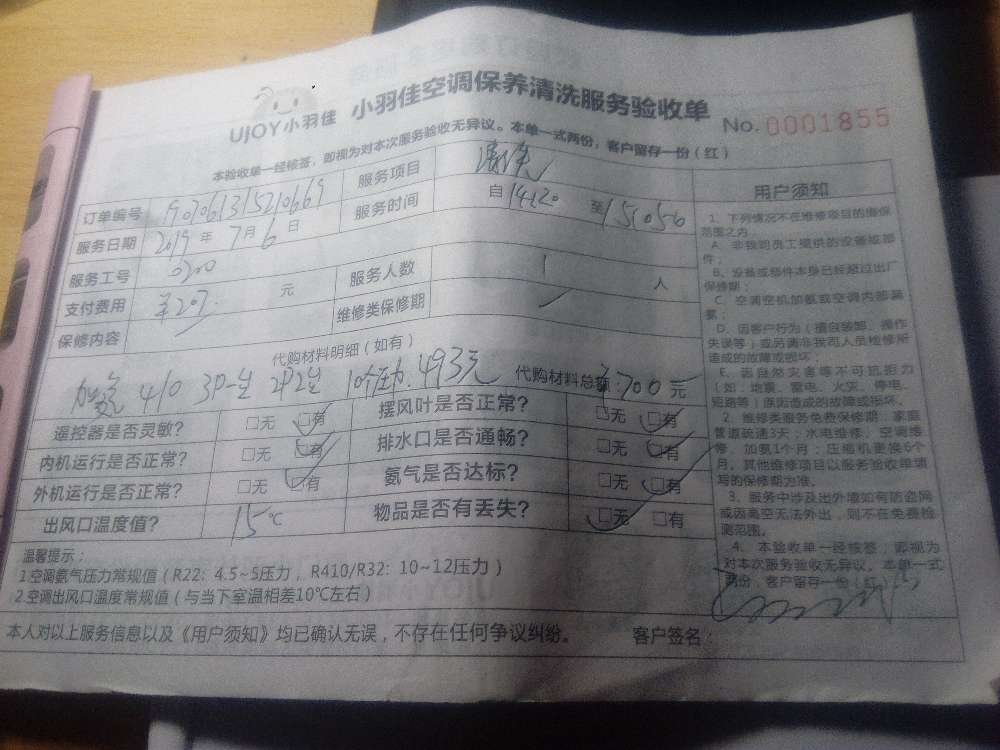 UJOY小羽佳 小羽佳空调保养清洗服务验收单
No. 0001855
本验收单一经核签，即视为对本次服务验收无异议。本单一式两份，客户留存一份（红）
订单编号
服务项目 清洗
服务日期 2019 年 7 月 6 日
服务时间 自 14:20 至
服务工号 0200
服务人数 1 人
支付费用 元
维修类保修期
保修内容
代购材料明细（如有）
加氨 410 3P一台 2P2台 493元 代购材料总额：700元
遥控器是否灵敏？ □无 □有
摆风叶是否正常？ □无 □有
内机运行是否正常？ □无 □有
排水口是否通畅？ □无 □有
外机运行是否正常？ □无 □有
氨气是否达标？ □无 □有
出风口温度值？ 15 ℃
物品是否有丢失？ □无 □有
温馨提示：
1.空调氨气压力常规值（R22: 4.5~5压力，R410/R32: 10~12压力）
2.空调出风口温度常规值（与当下室温相差10℃左右）
本人对以上服务信息以及《用户须知》均已确认无误，不存在任何争议纠纷。 客户签名：
用户须知
1、下列情况不在维修项目的维保
范围之内
A、非我司员工提供的设备或部
件；
B、设备或部件本身已经超过出厂
保修期；
C、空调空机加氨或空调内部漏
氨；
D、因客户行为（擅自装卸、操作
失误等）或另请非我司人员检修所
造成的故障或损坏；
E、因自然灾害等不可抗拒力
（如：地震、雷电、火灾、停电、
短路等）原因造成的故障或损坏。
2、维修类服务免费保修期：家庭
管道疏通3天；水电维修、空调维
修、加氨1个月；压缩机更换6个
月。其他维修项目以服务验收单填
写的保修期为准。
3、服务中涉及出外墙如有防盗网
或因高空无法外出，则不在免费检
测范围。
4、本验收单一经核签，即视为
对本次服务验收无异议。本单一式
两份，客户留存一份（红）